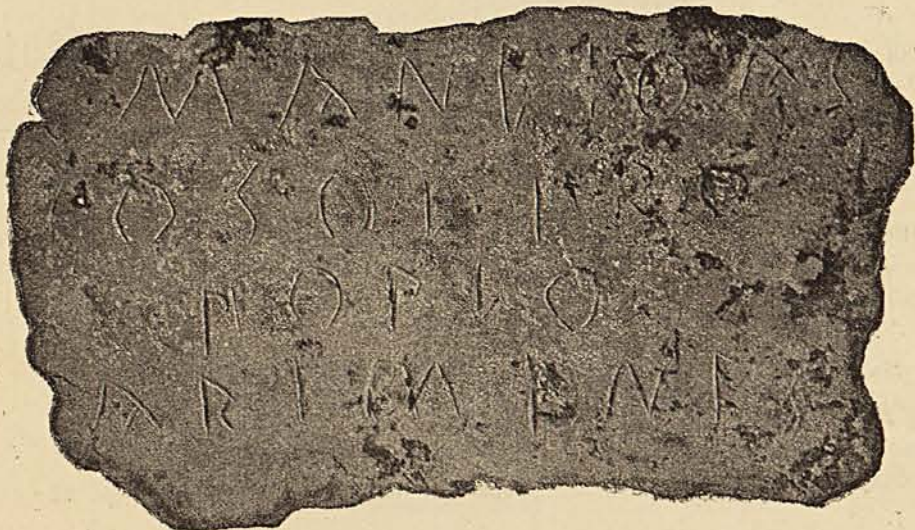 MANLIO
COSOL PRO
POPLO
ARIMENE